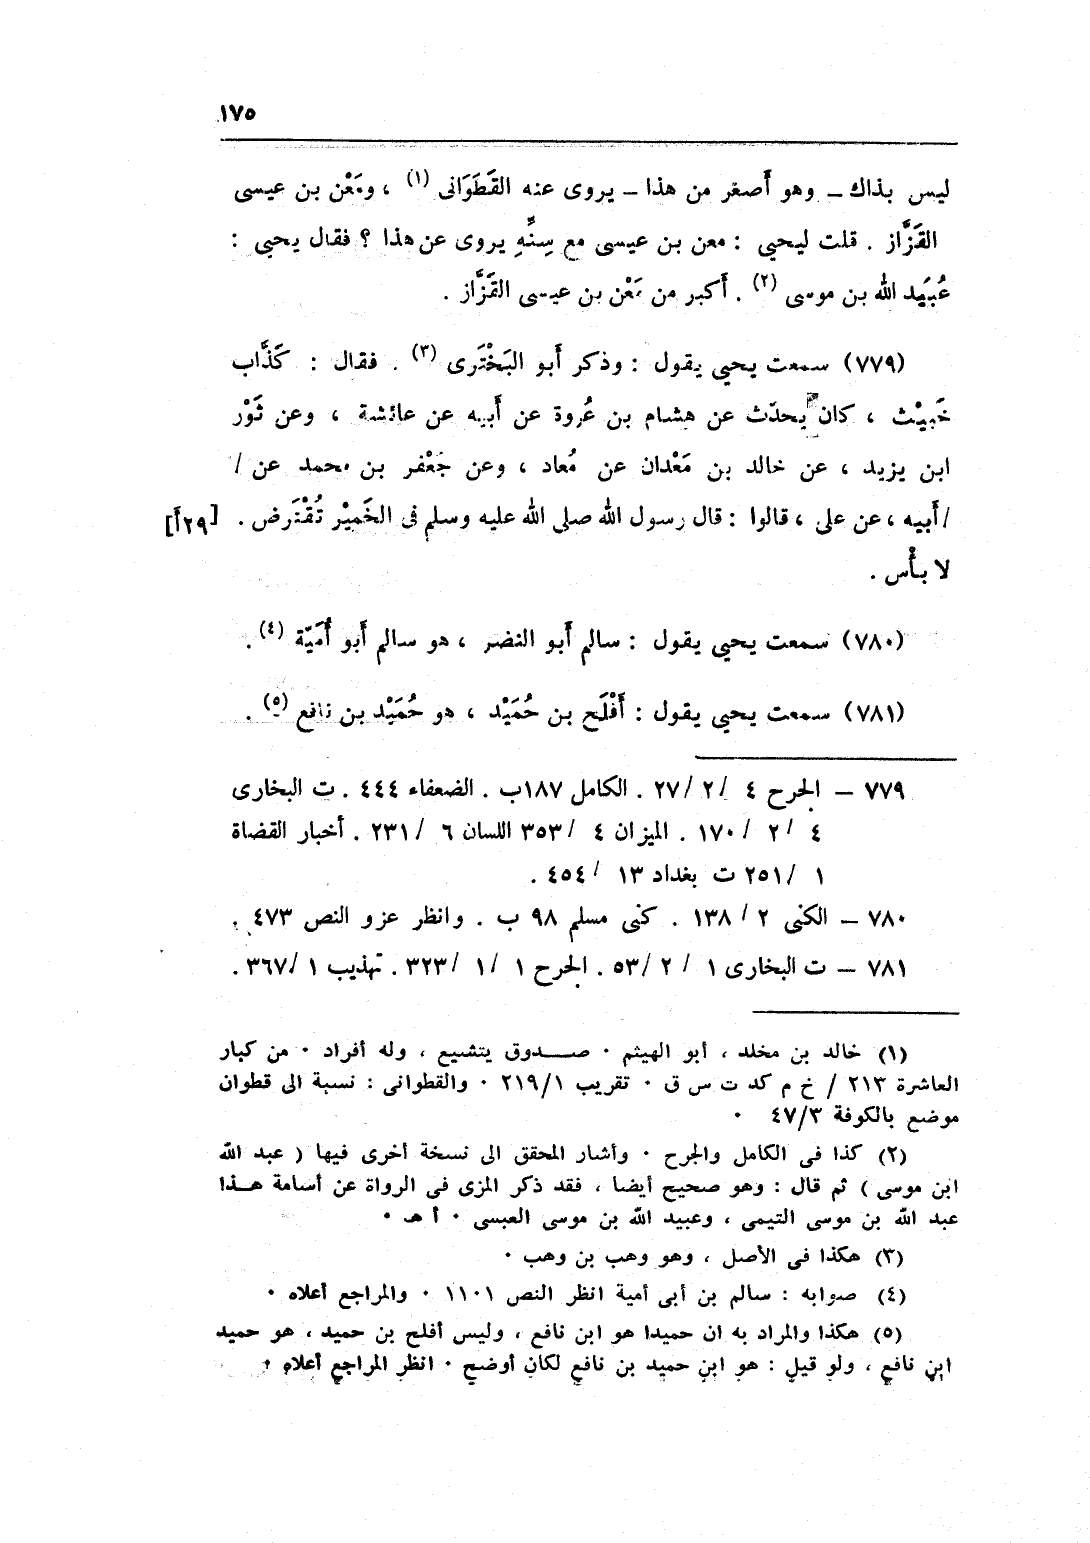 ١٧٥
ليس بذاك ــ وهو أَصغر من هذا ــ يروى عنه القَطَوَانى (١) ، ومَعْن بن عيسى
القَزَّاز . قلت ليحيى : معن بن عيسى مع سِنِّهِ يروى عن هذا ؟ فقال يحيى :
عُبَيد الله بن موسى (٢) . أَكبر من مَعْن بن عيسى القَزَّاز .
(٧٧٩) سمعت يحيى يقول : وذكر أَبو البَخْتَرى (٣) . فقال : كَذَّاب
خَبِيْث ، كان يحدّث عن هشام بن عُروة عن أَبيه عن عائشة ، وعن ثَوْر
ابن يزيد ، عن خالد بن مَعْدان عن مُعاد ، وعن جَعْفر بن محمد عن /
/ أَبيه ، عن على ، قالوا : قال رسول الله صلى الله عليه وسلم فى الخَمِيْر تُقْتَرض . [٢٩أ]
لا بأْس .
(٧٨٠) سمعت يحيى يقول : سالم أَبو النضر ، هو سالم أَبو أُمَيّة (٤) .
(٧٨١) سمعت يحيى يقول : أَفْلَح بن حُمَيْد ، هو حُمَيْد بن نافع (٥) .
٧٧٩ – الجرح ٤ / ٢ / ٢٧ . الكامل ١٨٧ب . الضعفاء ٤٤٤ . ت البخارى
٤ / ٢ / ١٧٠ . الميزان ٤ / ٣٥٣ اللسان ٦ / ٢٣١ . أخبار القضاة
١ / ٢٥١ ت بغداد ١٣ / ٤٥٤ .
٧٨٠ – الكنى ٢ / ١٣٨ . كنى مسلم ٩٨ ب . وانظر عزو النص ٤٧٣ .
٧٨١ – ت البخارى ١ / ٢ / ٥٣ . الجرح ١ / ١ / ٣٢٣ . تهذيب ١ / ٣٦٧ .
(١) خالد بن مخلد ، أبو الهيثم ٠ صـــدوق يتشيع ، وله أفراد ٠ من كبار
العاشرة ٢١٣ / خ م كد ت س ق ٠ تقريب ٢١٩/١ ٠ والقطوانى : نسبة الى قطوان
موضع بالكوفة ٤٧/٣ ٠
(٢) كذا فى الكامل والجرح ٠ وأشار المحقق الى نسخة أخرى فيها ( عبد الله
ابن موسى ) ثم قال : وهو صحيح أيضا ، فقد ذكر المزى فى الرواة عن أسامة هــذا
عبد الله بن موسى التيمى ، وعبيد الله بن موسى العبسى ٠ أ هـ ٠
(٣) هكذا فى الأصل ، وهو وهب بن وهب ٠
(٤) صوابه : سالم بن أبى أمية انظر النص ١١٠١ ٠ والمراجع أعلاه ٠
(٥) هكذا والمراد به ان حميدا هو ابن نافع ، وليس أفلح بن حميد ، هو حميد
ابن نافع ، ولو قيل : هو ابن حميد بن نافع لكان أوضح ٠ انظر المراجع أعلاه ٠